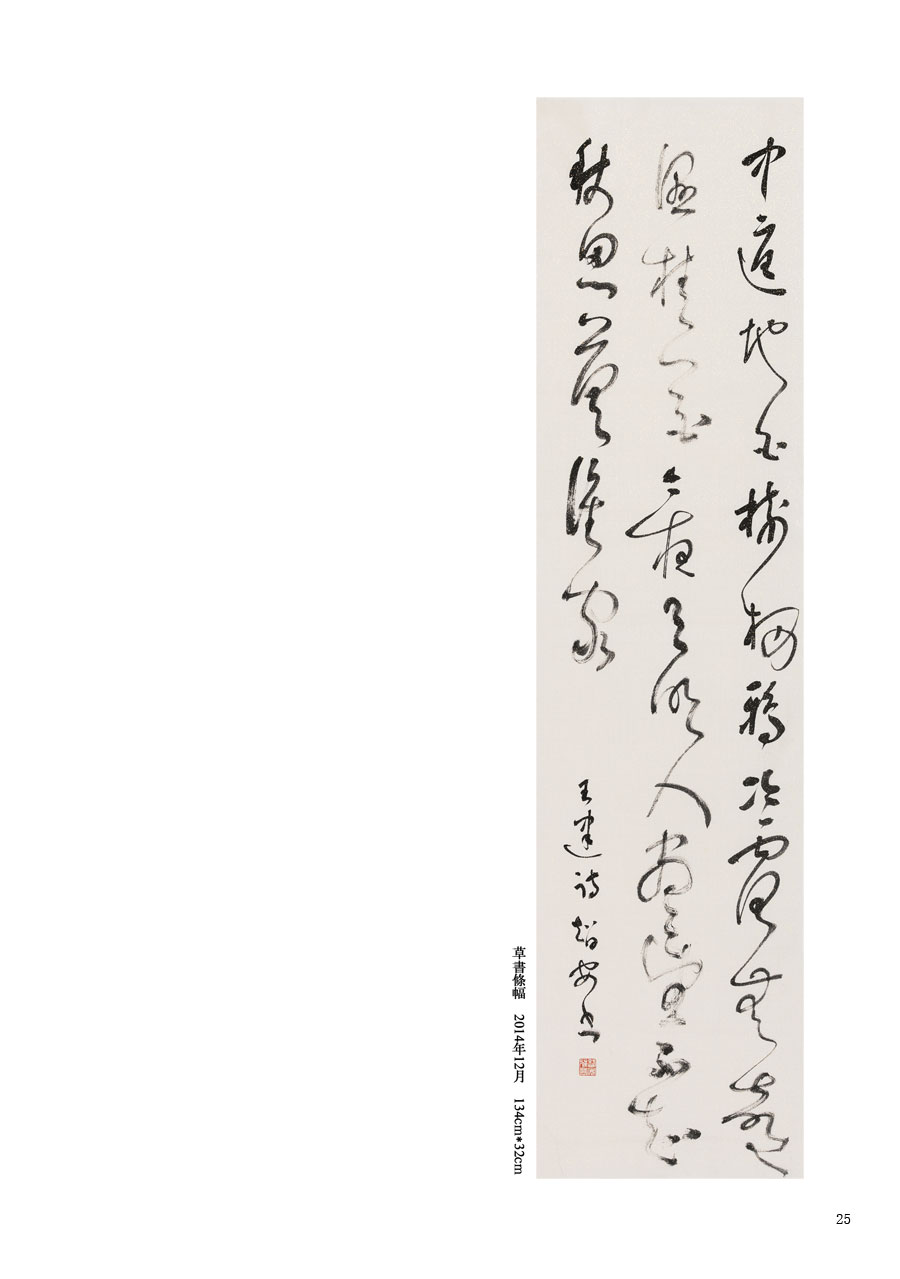 中庭地白樹棲鴉冷露無聲
濕桂花今夜月明人盡望不知
秋思落誰家
王建詩智安书
草書條幅 2014年12月 134cm*32cm
25